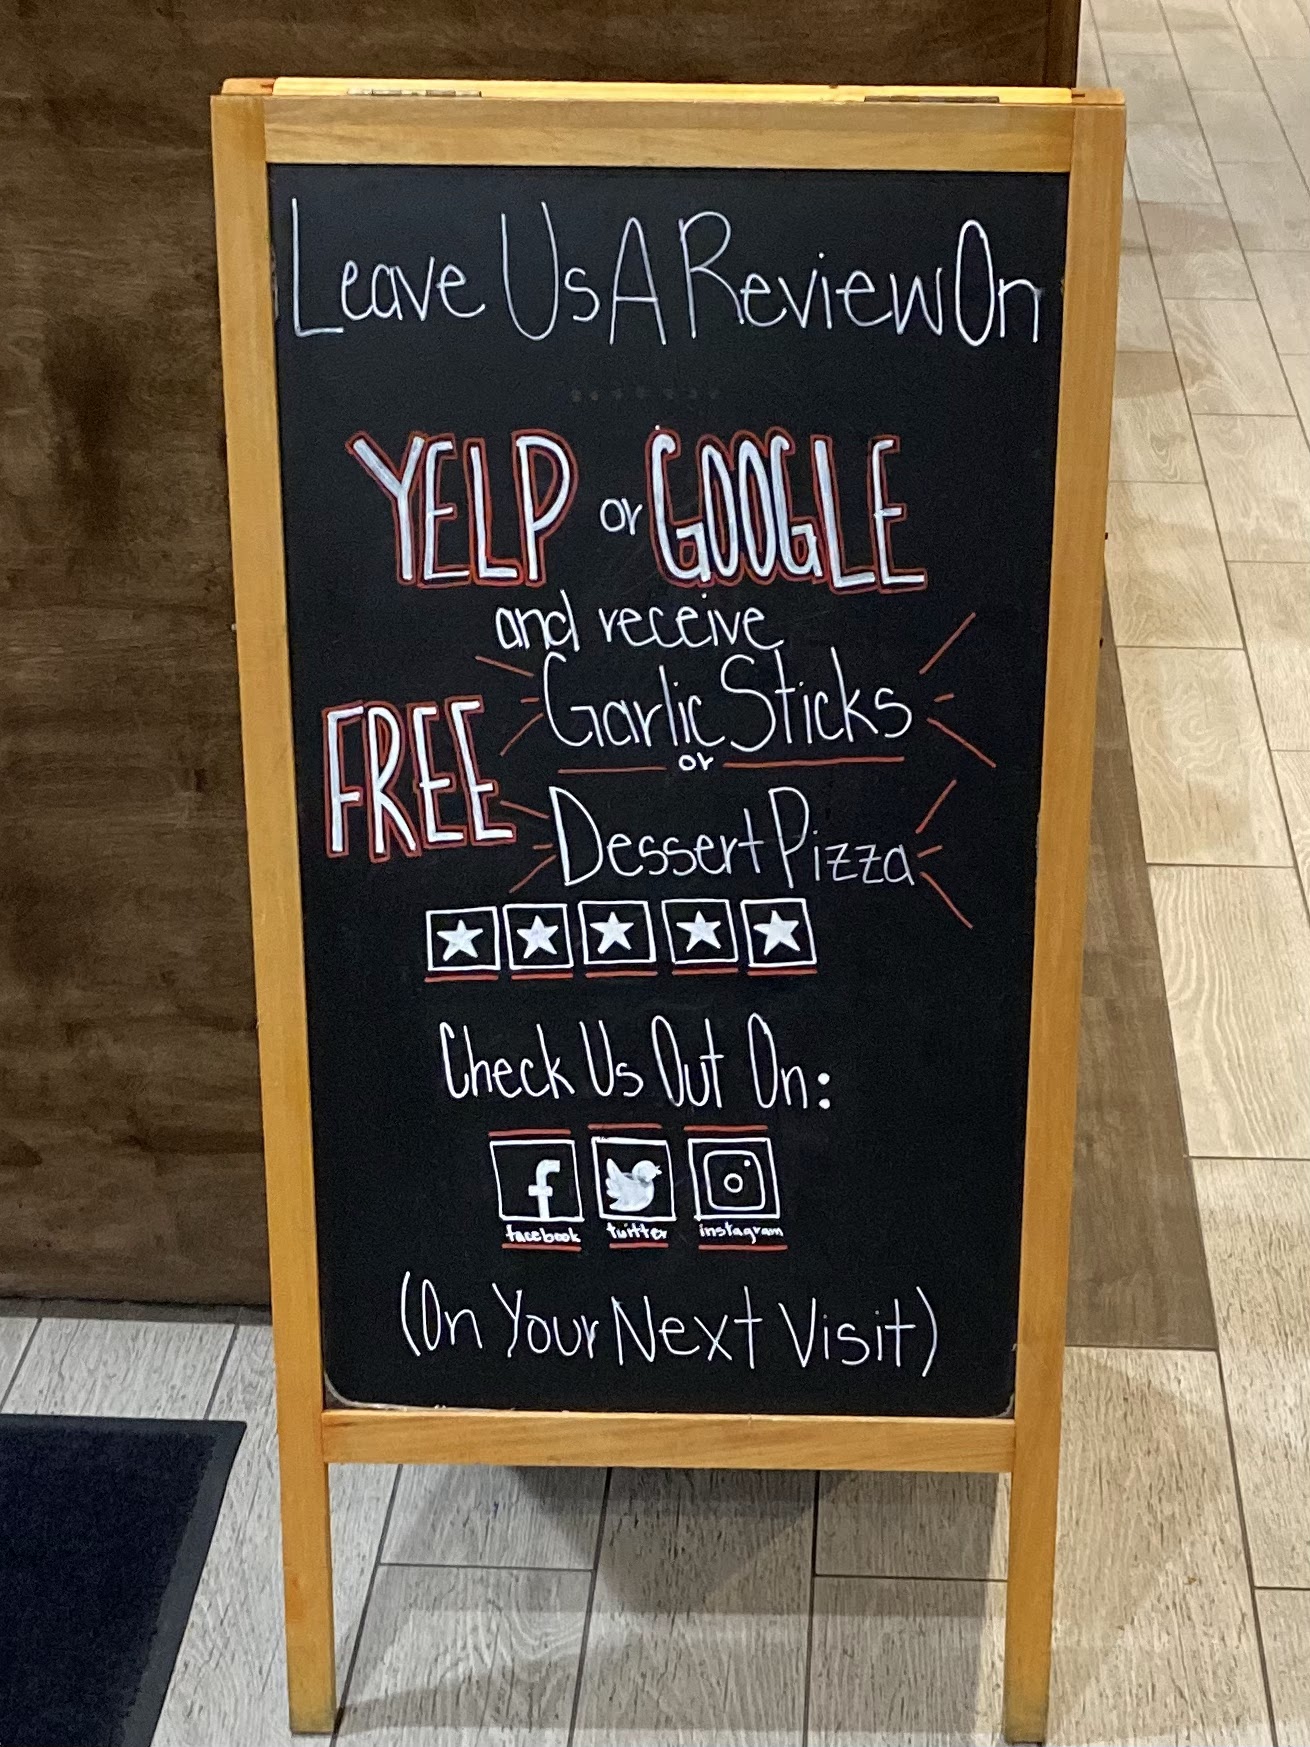 Leave Us A Review On
YELP or GOOGLE
and receive
FREE Garlic Sticks
or
Dessert Pizza
Check Us Out On:
facebook twitter instagram
(On Your Next Visit)